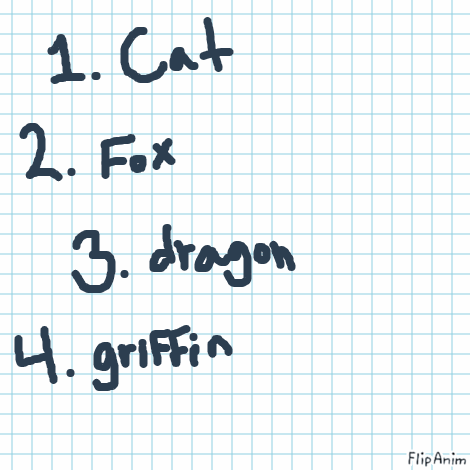 1. Cat
2. Fox
3. dragon
4. griffin
FlipAnim